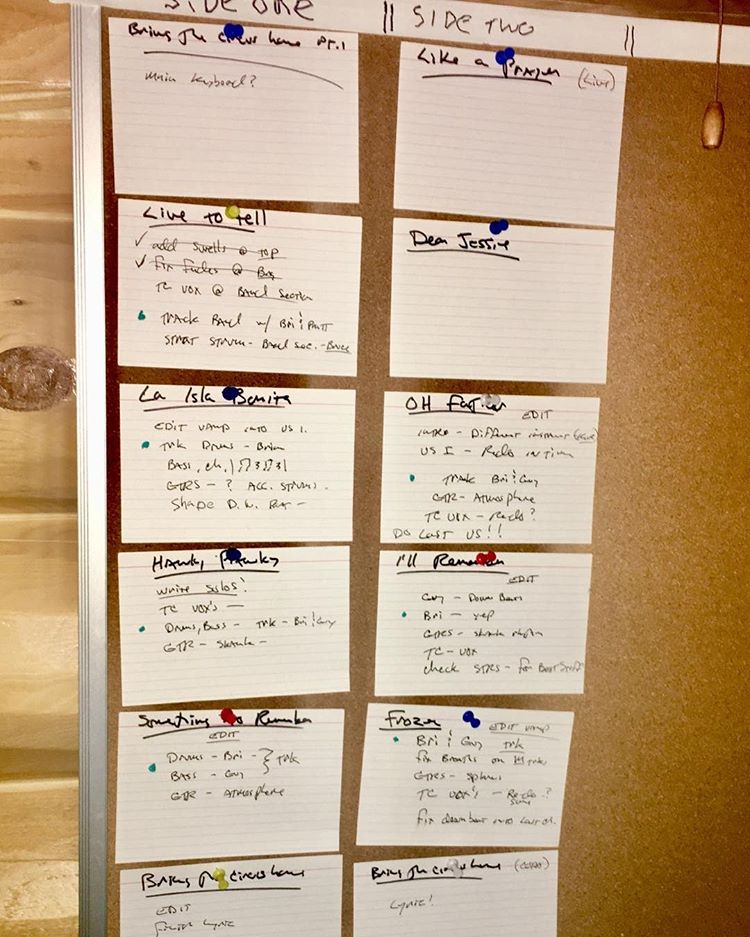 SIDE ONE || SIDE TWO ||
Bring the circus home pt.1
main keyboard?
Live to tell
add swells @ top
fix @
TC VOX @ Band Section
Track Band w/ Bri &
Strat Strum - Band Sec. -
La Isla Bonita
EDIT VAMP INTO US 1.
Trk Drums - Brian
BASS, ch.
GTRS - ? Acc. Strums.
Shape D.W.
Hanky Panky
write solos!
TC VOX's —
Drums, Bass - Trk - Bri & Guy
GTR - Skank -
Something to Remember
EDIT
Drums - Bri - } Trk
BASS - Guy
GTR - ATMOSPHERE
Bring the circus home
EDIT
Finish Lyric
Like a Prayer (Live)
Dear Jessie
OH Father
EDIT
intro - Different instrument
US I - Redo in Time
Track Bri & Guy
GTR - Atmosphere
TC VOX - Redo?
DO LAST US!!
I'll Remember
EDIT
Guy - Down Beats
Bri - yep
GTRS -
TC - VOX
check STRS - for
Frozen
EDIT VAMP
Bri & Guy Trk
fix Breaths on
GTRS -
TC VOX's - Redo some?
Fix downbeat into last ch.
Bring the circus home
Lyric!